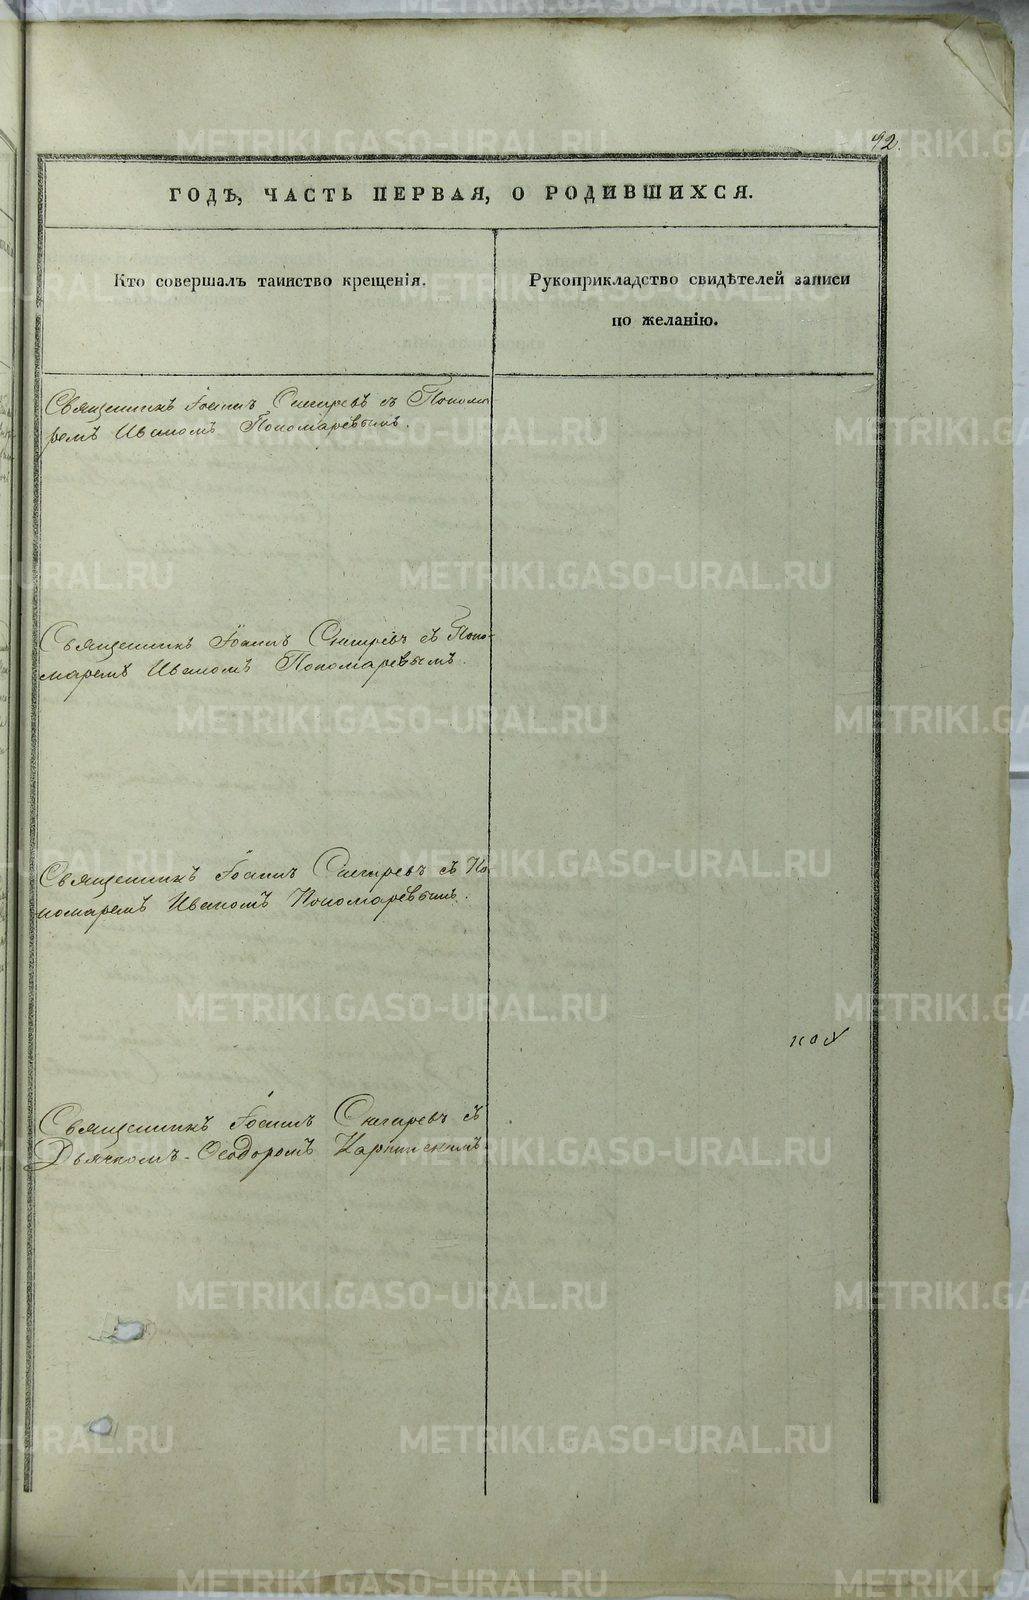 92.
ГОДЪ, ЧАСТЬ ПЕРВАЯ, О РОДИВШИХСЯ.
Кто совершалъ таинство крещенія.
Рукоприкладство свидѣтелей записи
по желанію.
Священникъ Іоаннъ Снегиревъ съ Понома
ремъ Иваномъ Пономаревымъ.
Священникъ Іоаннъ Снегиревъ съ Поно-
маремъ Иваномъ Пономаревымъ.
Священникъ Іоаннъ Снегиревъ съ По
номаремъ Иваномъ Пономаревымъ.
Священникъ Іоаннъ Снегиревъ съ
Дьячкомъ Ѳеодоромъ
METRIKI.GASO-URAL.RU